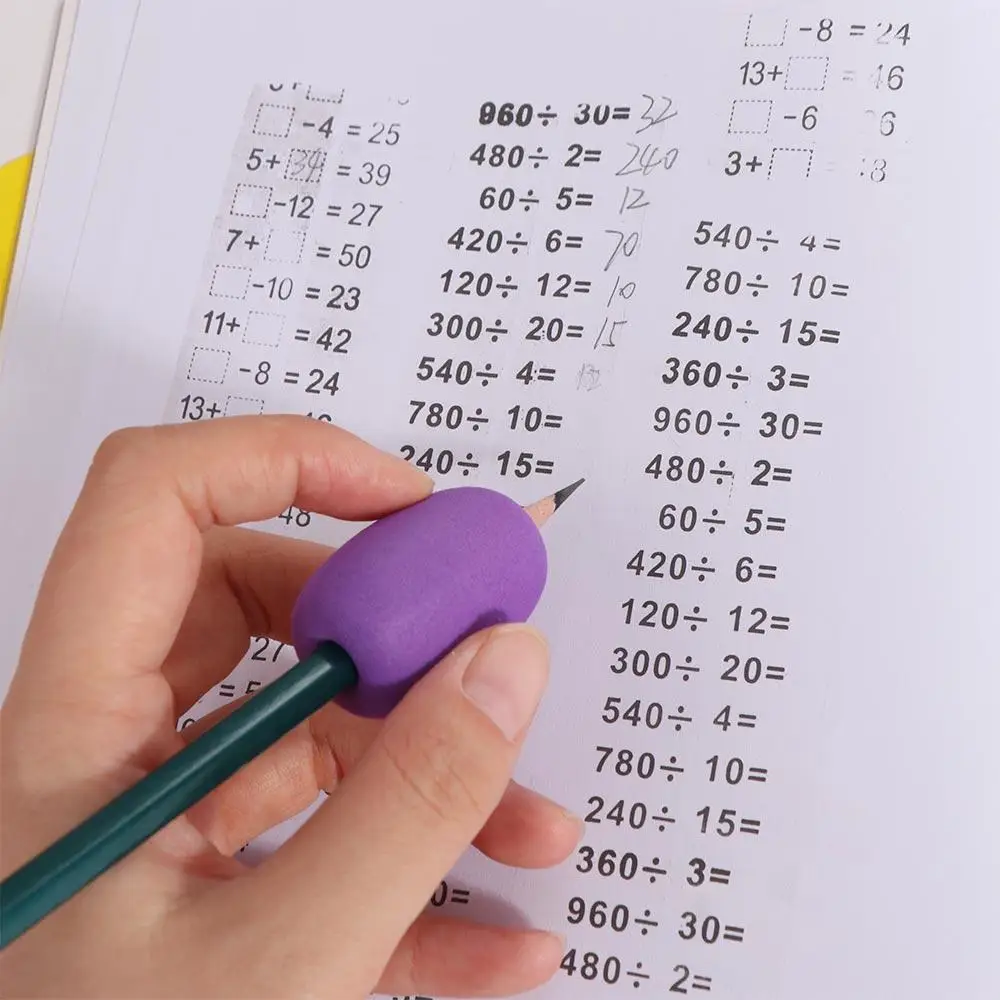 -4 = 25
5+ 34 = 39
-12 = 27
7+ = 50
-10 = 23
11+ = 42
-8 = 24
13+
48
27
=
960÷ 30= 32
480÷ 2= 240
60÷ 5= 12
420÷ 6= 70
120÷ 12= 10
300÷ 20= 15
540÷ 4=
780÷ 10=
240÷ 15=
0=
-8 = 24
13+ = 46
-6
3+
540÷ 4=
780÷ 10=
240÷ 15=
360÷ 3=
960÷ 30=
480÷ 2=
60÷ 5=
420÷ 6=
120÷ 12=
300÷ 20=
540÷ 4=
780÷ 10=
240÷ 15=
360÷ 3=
960÷ 30=
480÷ 2=